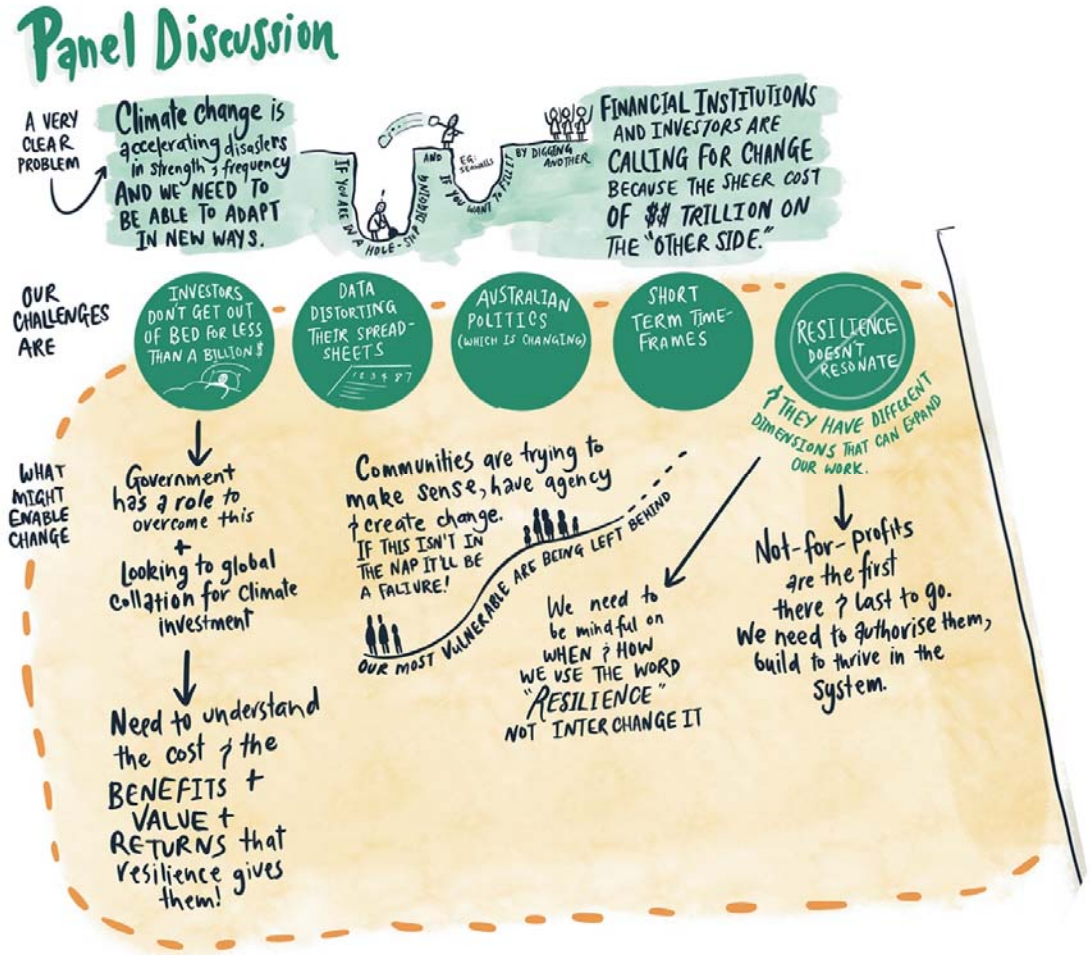 Panel Discussion
A VERY
CLEAR
PROBLEM
Climate change is
accelerating disasters
in strength & frequency
AND WE NEED TO
BE ABLE TO ADAPT
IN NEW WAYS.
IF YOU ARE IN A HOLE-STOP DIGGING
AND IF YOU WANT TO FILL IT
EG:
SEAWALLS
BY DIGGING
ANOTHER
FINANCIAL INSTITUTIONS
AND INVESTORS ARE
CALLING FOR CHANGE
BECAUSE THE SHEER COST
OF $$ TRILLION ON
THE "OTHER SIDE."
OUR
CHALLENGES
ARE
INVESTORS
DON'T GET OUT
OF BED FOR LESS
THAN A BILLION $
DATA
DISTORTING
THEIR SPREAD-
SHEETS
1 2 3 4 8 7
AUSTRALIAN
POLITICS
(WHICH IS CHANGING)
SHORT
TERM TIME-
FRAMES
RESILIENCE
DOESN'T
RESONATE
& THEY HAVE DIFFERENT
DIMENSIONS THAT CAN EXPAND
OUR WORK.
WHAT
MIGHT
ENABLE
CHANGE
Government
has a role to
overcome this
+
Looking to global
collation for Climate
investment
Need to understand
the cost & the
BENEFITS +
VALUE +
RETURNS that
resilience gives
them!
Communities are trying to
make sense, have agency
& create change.
IF THIS ISN'T IN
THE NAP IT'LL BE
A FALIURE!
OUR MOST VULNERABLE ARE BEING LEFT BEHIND
We need to
be mindful on
WHEN & HOW
WE USE THE WORD
"RESILIENCE"
NOT INTERCHANGE IT
Not-for-profits
are the first
there & last to go.
We need to authorise them,
build to thrive in the
system.